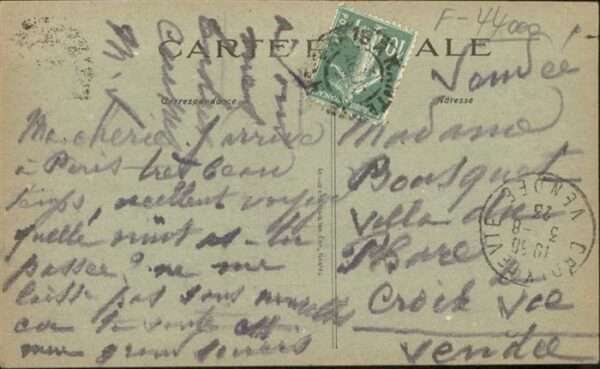 F-44000
CARTE POSTALE
Correspondance
Adresse
Vendée
Ma chérie. J'arrive
à Paris très beau
temps, excellent voyage
quelle nuit as-tu
passée? ne me
laisse pas sans nouvelles
car ta santé est
mon grand soucis
Madame
Bousquet
Villa du
Phare
Croix Vie
Vendée
10
CROIX DE VIE
VENDÉE
19 30
3 -8
23